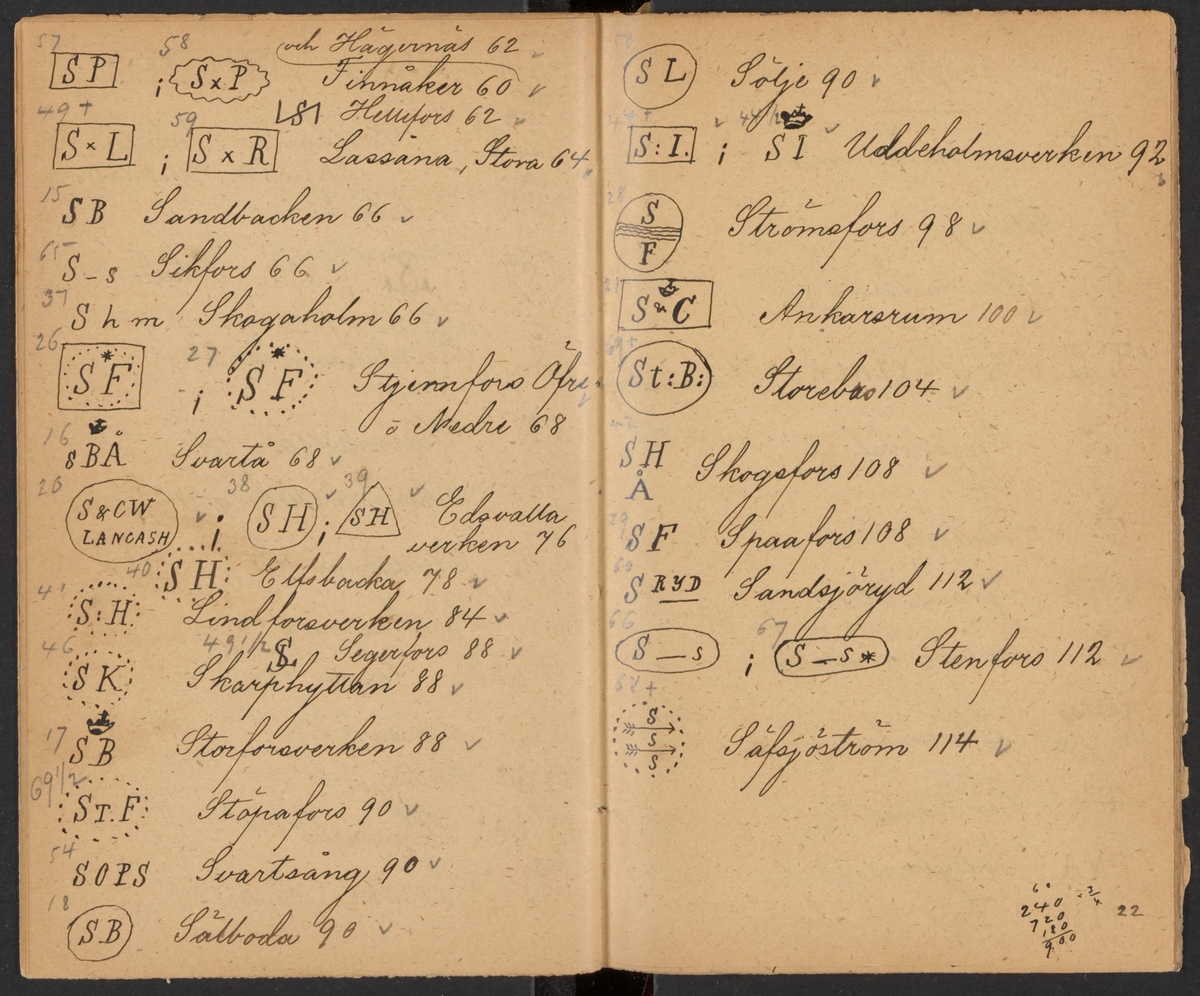 och Hägernäs 62
57 SP ; 58 S x P Finnåker 60
S Hellefors 62
49 + S x L ; 59 S x R Lassåna, Stora 64
15 SB Sandbacken 66
65 S - s Sikfors 66
37 S h m Skogaholm 66
26 SF ; 27 SF Stjernfors Öfre
o Nedre 68
16 sBÅ Svartå 68
20 S & CW LANCASH ; 38 SH ; 39 SH Edsvalla
verken 76
40 SH Elfsbacka 78
41 S:H Lindforsverken 84
49 1/2 SL Segerfors 88
46 SK Skarphyttan 88
17 SB Storforsverken 88
69 1/2 ST.F Stöpafors 90
54 SOPS Svartsång 90
18 S.B Sälboda 90
SL Sölje 90
S:I. ; SI Uddeholmsverken 92
28 S F Strömsfors 98
S & C Ankarsrum 100
St:B: Storebro 104
SH Å Skogsfors 108
29 SF Spaafors 108
60 S RYD Sandsjöryd 112
66 S — s ; 67 S — s * Stenfors 112
S S S Säfsjöström 114
240
720
180
900
22